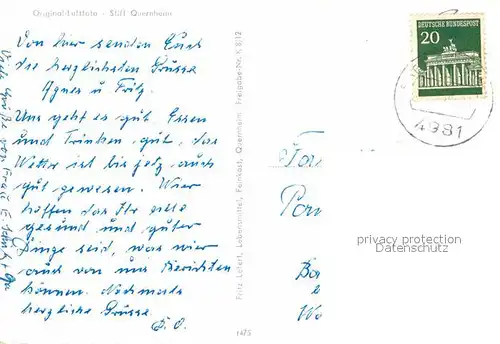 Original-Luftfoto - Stift Quernheim
Von hier senden Euch
die herzlichsten Grüsse
Agnes u Fritz.
Uns geht es gut. Essen
und Trinken gut, das
Wetter ist bis jetz auch
gut gewesen. Wier
hoffen das Ihr alle
gesund und guter
Dinge seid, was wier
auch von uns Berichten
können. Nochmals
herzliche Grüsse
D. O.
Viele Grüße von Frau E.
Fritz Lefert, Lebensmittel, Feinkost, Quernheim
Freigabe-Nr. K 8/12
1475
DEUTSCHE BUNDESPOST
20
4981
Fam
privacy protection
Datenschutz